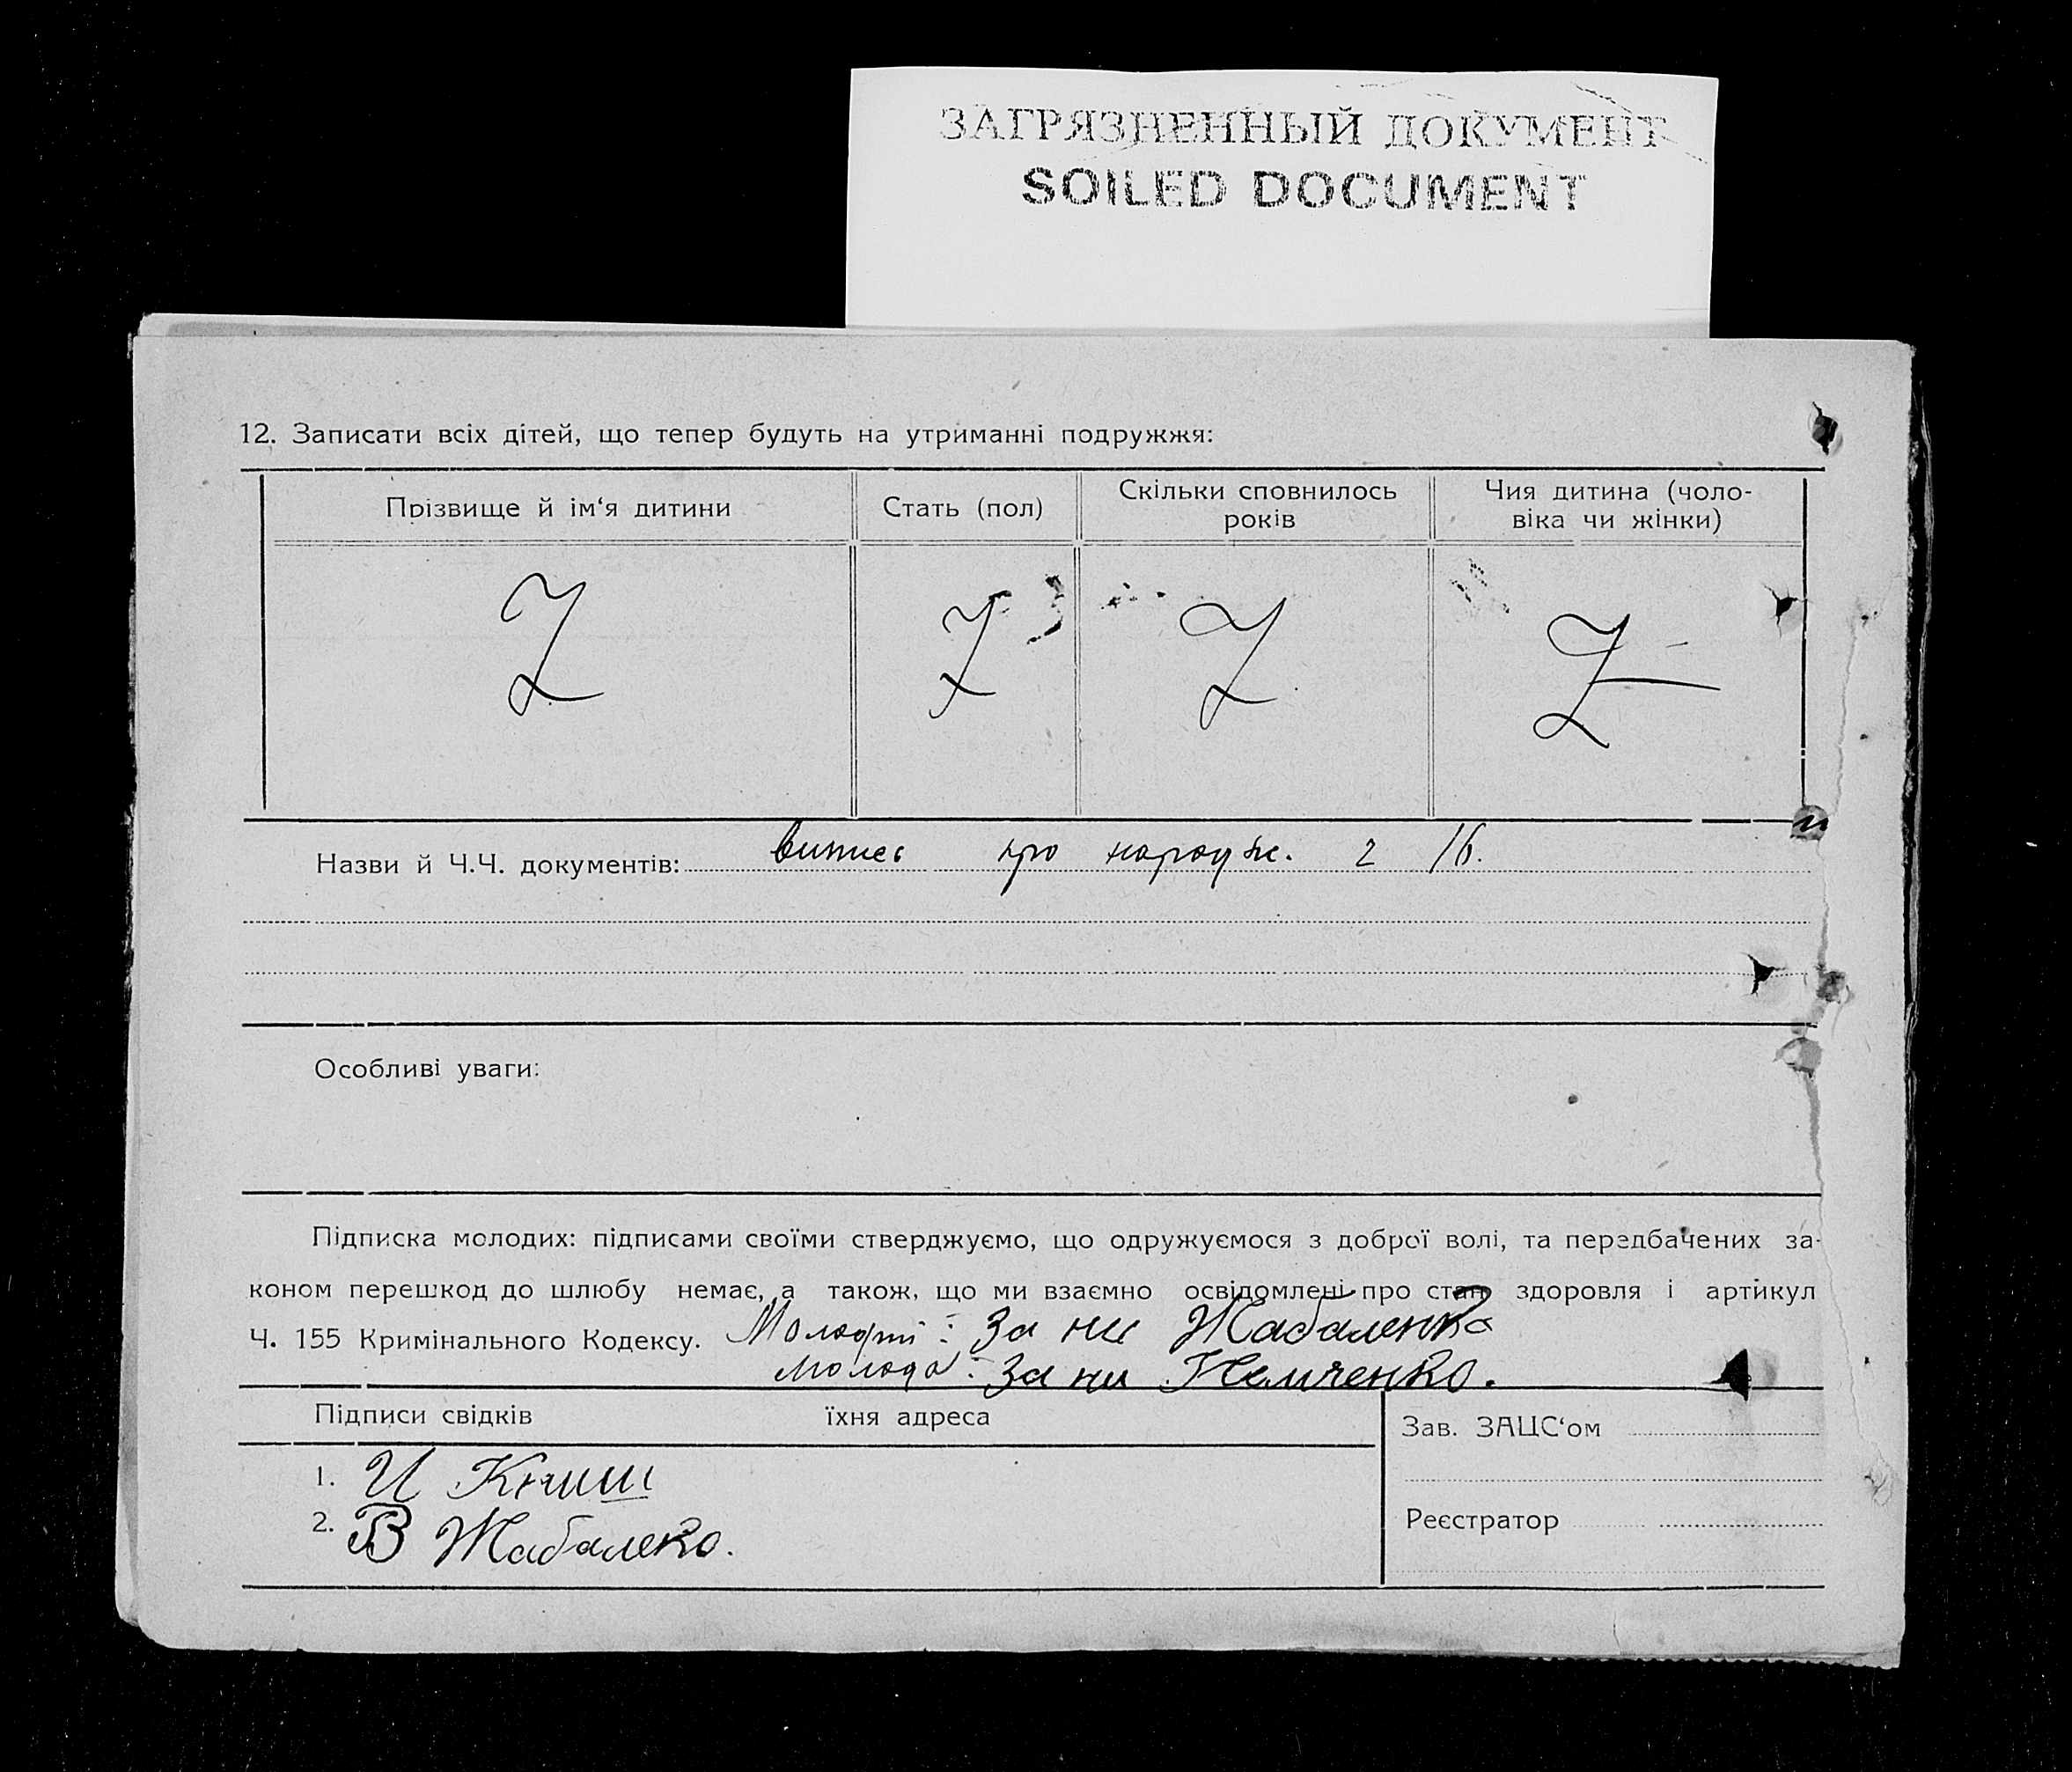 ЗАГРЯЗНЕННЫЙ ДОКУМЕНТ
SOILED DOCUMENT
12. Записати всіх дітей, що тепер будуть на утриманні подружжя:
Прізвище й ім‘я дитини
Стать (пол)
Скільки сповнилось
років
Чия дитина (чоло-
віка чи жінки)
Z Z Z Z
Назви й Ч.Ч. документів: випис про народж. 2 /б.
Особливі уваги:
Підписка молодих: підписами своїми стверджуємо, що одружуємося з доброї волі, та передбачених за-
коном перешкод до шлюбу немає, а також, що ми взаємно освідомлені про стан здоровля і артикул
Ч. 155 Кримінального Кодексу. Молодий: За не Жабаленко
Молода: За ни Немченко.
Підписи свідків їхня адреса
Зав. ЗАЦС‘ом
1. И Книш
2. В Жабалеко.
Реєстратор